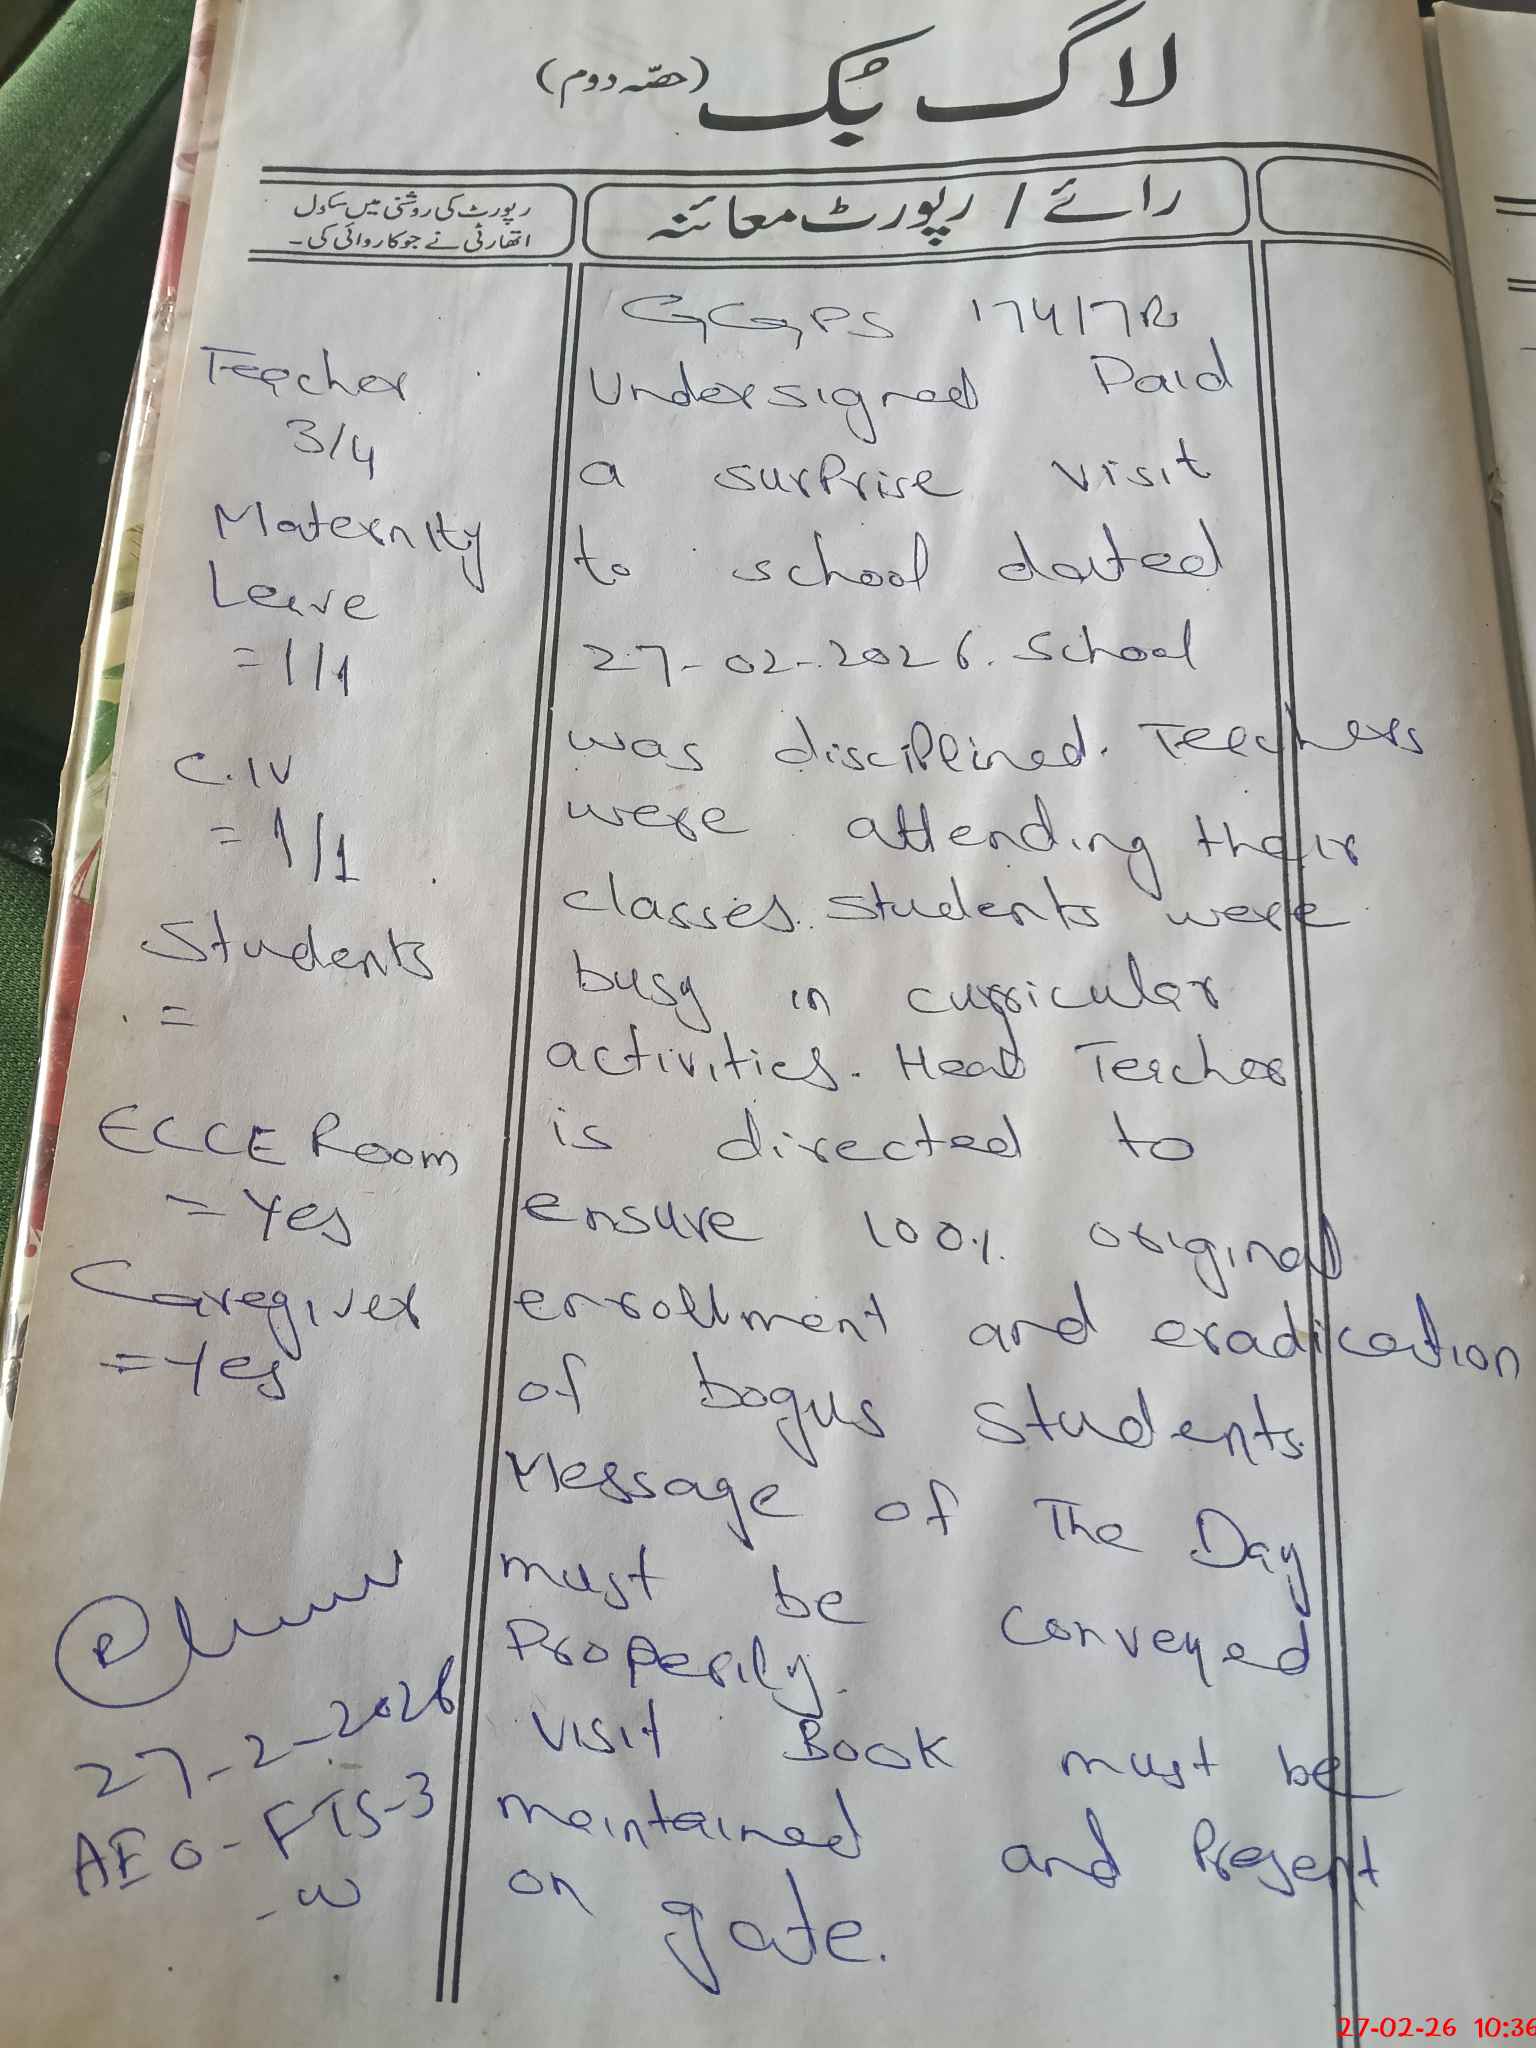 لاگ بک (حصّہ دوم)
رائے / رپورٹ معائنہ
رپورٹ کی روشنی میں سکول
اتھارٹی نے جو کاروائی کی۔
GGPS 174/7R
Undersigned Paid
a surprise visit
to school dated
27-02-2026. School
was disciplined. Teachers
were attending their
classes. Students were
busy in curricular
activities. Head Teacher
is directed to
ensure 100% original
enrollment and eradication
of bogus students.
Message of The Day
must be conveyed
Properly.
Visit Book must be
maintained and Present
on gate.
Teacher
3/4
Maternity
Leave
= 1/1
C.IV
= 1/1
Students
=
ECCE Room
= Yes
Caregiver
= Yes
27-2-2026
AEO-FTS-3
-W
27-02-26 10:36